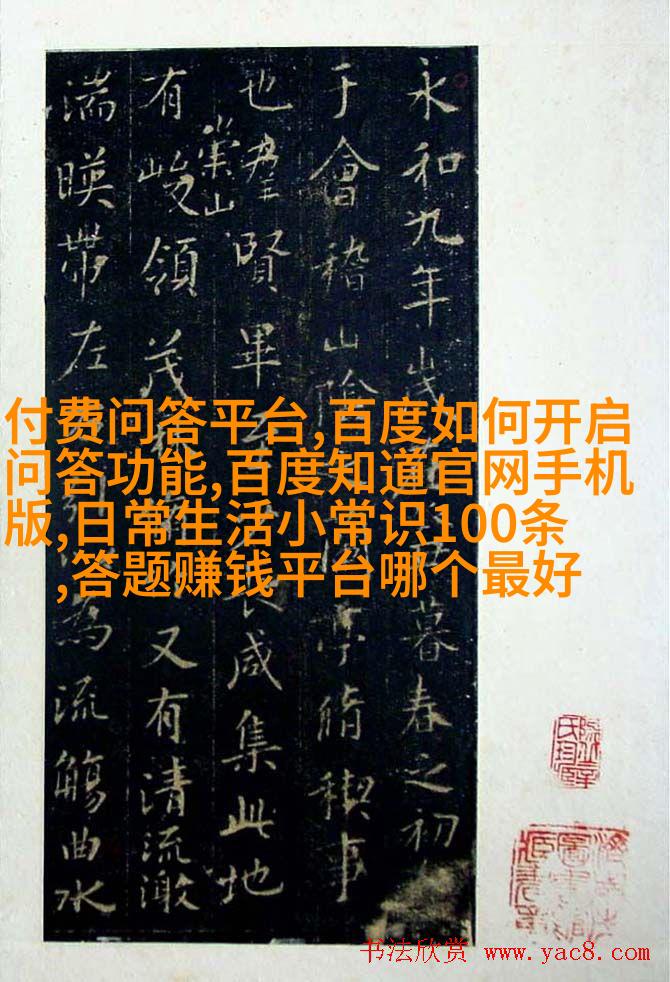 永和九年暮春之初
于會稽山陰亭脩稧事
也羣賢畢咸集此地
有崇山峻領茂又有清流激
湍暎帶左為流觴曲水
付费问答平台,百度如何开启
问答功能,百度知道官网手机
版,日常生活小常识100条
,答题赚钱平台哪个最好
书法欣赏 www.yac8.com